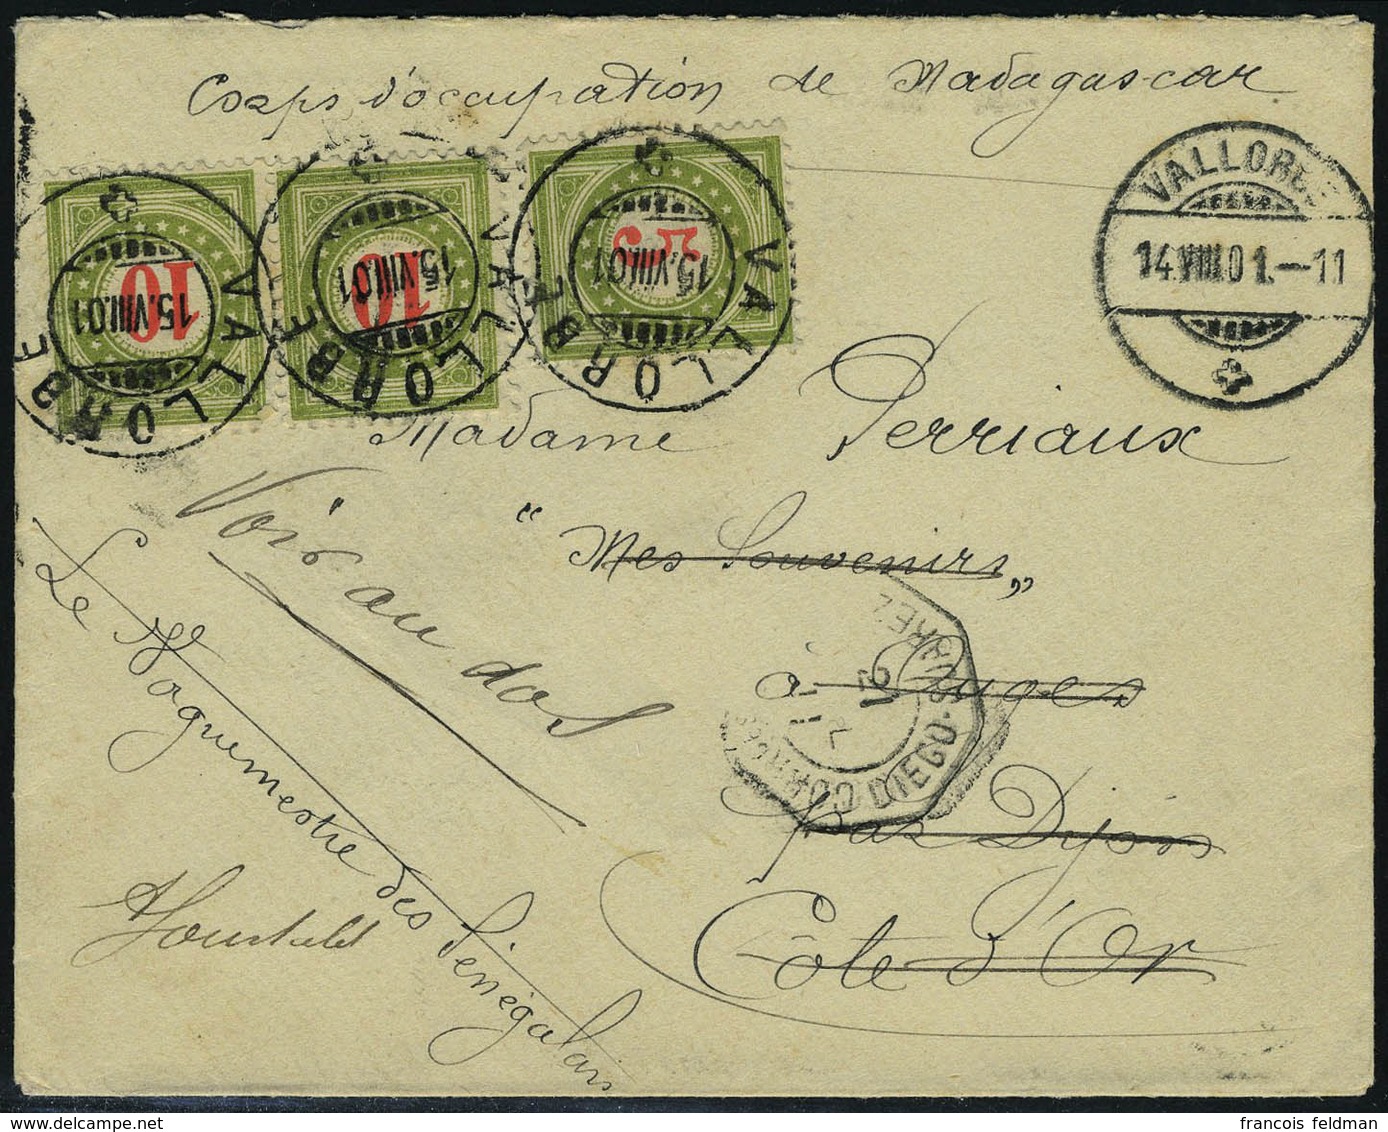 Corps d'occupation de Madagascar
VALLORBE
14.VIII.01.-11
10
VALLORBE
15.VIII.01
10
VALLORBE
15.VIII.01
5
VALLORBE
15.VIII.01
Madame Perriaux
"Mes Souvenirs"
à Auges
par Dijon
Côte d'Or
Voir au dos
Le Vaguemestre des Sénégalais
DIEGO-SUAREZ
francois feldman